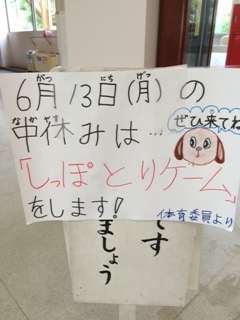 6月13日(月)の
がつ にち げつ
中休みは…
なかやす
ぜひ来てね
「しっぽとりゲーム」
をします!
体育委員より
です
ましょう